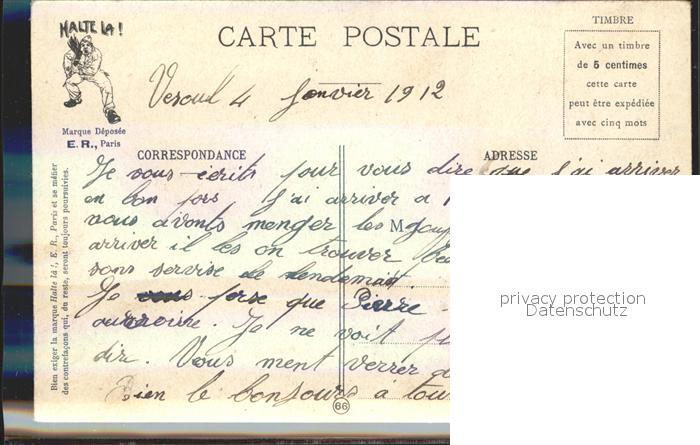 HALTE LÀ !
Marque Déposée
E. R., Paris
CARTE POSTALE
TIMBRE
Avec un timbre
de 5 centimes
cette carte
peut être expédiée
avec cinq mots
Vesoul 4 Janvier 1912
CORRESPONDANCE
ADRESSE
Je vous ecrits pour vous dire que j'ai arriver
en bon pors j'ai arriver a
nous avonts menger les
M
arriver il les on trouver
sons servise de lendemain
Je perse que Pierre
Je ne voit
dir. Vous ment verrer
Bien le bonjours à tou
66
Bien exiger la marque Halte là !, E. R., Paris et se méfier
des contrefaçons qui, du reste, seront toujours poursuivies.
privacy protection
Datenschutz